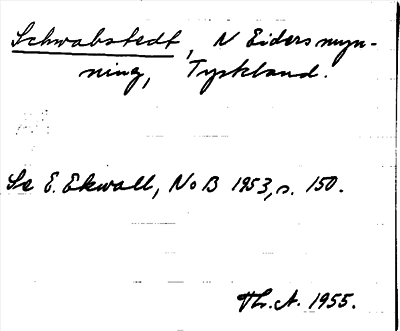 Schwabstedt, N Eidersmyn-
ning, Tyskland.
Se E. Ekwall, NoB 1953, s. 150.
Th. A. 1955.